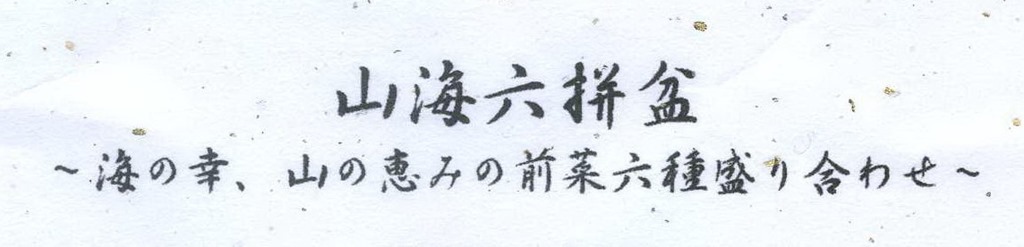 山海六拼盆
~海の幸、山の恵みの前菜六種盛り合わせ~